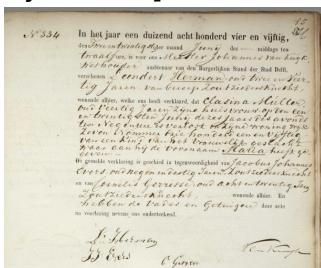 45
N° 334
In het jaar een duizend acht honderd vier en vijftig,
den Twee en twintigsten der maand Junij des middags ten
twaalf ure, is voor ons Mr Johannes van Kuyk
Wethouder ambtenaar van den Burgerlijken Stand der Stad Delft,
verschenen Leendert Herman oud twee en veer-
tig Jaren van beroep Zoutziedersknecht,
wonende alhier, welke ons heeft verklaard, dat Clasina Mulder
oud Veertig Jaren zijne huisvrouw op den een
en twintigsten Junij dezes Jaars des avonds
ten Negen ure in zijne woning wijk
Zeven Nommer Vijf honderd een en vijftig
van een Kind van het vrouwelijk geslacht
waar aan hij de Voornaam Maria heeft ge-
geven
De gemelde verklaring is geschied in tegenwoordigheid van Jacobus Johannes
Evers oud negen en dertig Jaren Zoutziedersknecht
en van Cornelis Gerresse oud acht en twintig Jaren
Zoutziedersknecht, wonende alhier. En
hebben de Vader en Getuigen deze acte
na voorlezing nevens ons onderteekend.
L: Herman
JJ Evers
C Gerresse